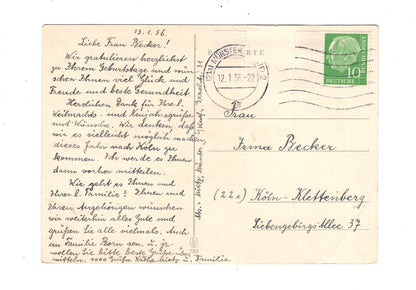 13.1.56.
Liebe Frau Becker!
Wir gratulieren herzlichst
zu Ihrem Geburtstage und wün-
schen Ihnen viel Glück und
Freude und beste Gesundheit.
Herzlichen Dank für Ihre l.
Weihnachts- und Neujahrsgrüße
und -Wünsche. Wir denken, daß
wir es vielleicht möglich machen
dieses Jahr nach Köln zu
kommen. Ich werde es Ihnen
dann vorher mitteilen.
Wie geht es Ihnen und
Ihrer l. Familie? Ihnen und
Ihren Angehörigen wünschen
wir weiterhin alles Gute und
grüßen Sie alle vielmals. Auch
an Familie Born sen. u. jr.
wollen Sie bitte beste Grüße über-
mitteln. 1000 Grüße u. Familia
Abs.: Münster
MÜNSTER
12.1.56.-22
DEUTSCHE
10
Frau
Irma Becker
(22c) Köln-Klettenberg
Siebengebirgsallee 37